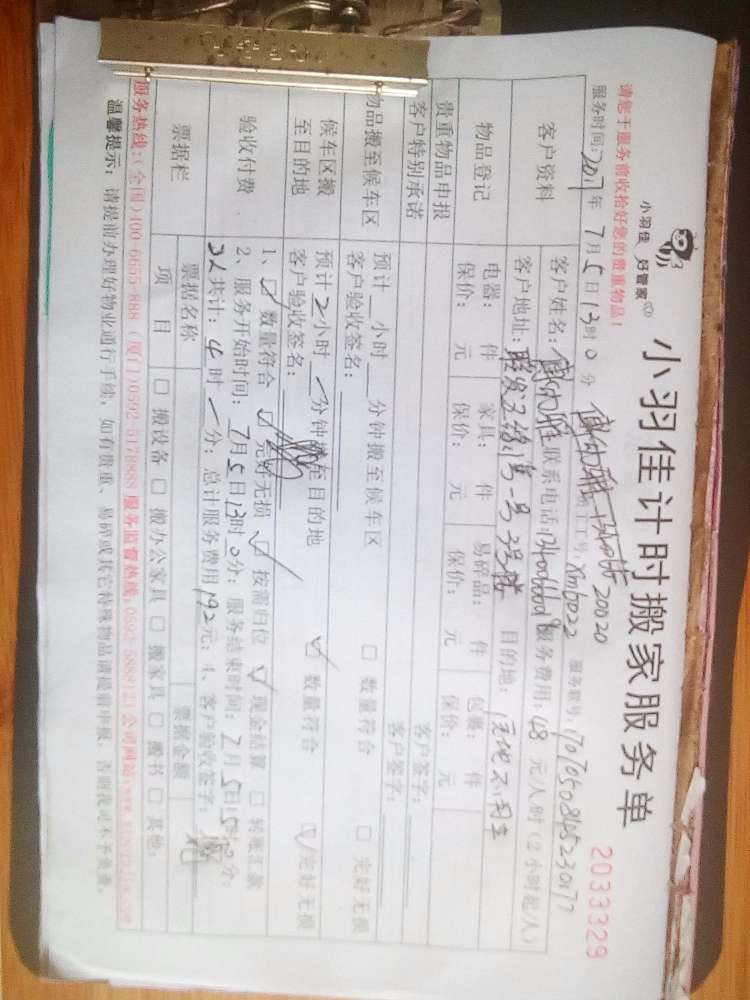 小羽佳 好管家
小羽佳计时搬家服务单
2033329
请您于服务前收拾好您的贵重物品!
服务时间:2017年7月5日13时0分 工号:Xmb022 服务单号:
客户资料
客户姓名: 联系电话: 服务费用:48元/人/时(2小时起/人)
客户地址: 目的地:
物品登记
电器: 件 家具: 件 易碎品: 件 包裹: 件
保价: 元 保价: 元 保价: 元 保价: 元
贵重物品申报 客户签字:
客户特别承诺 客户签字:
物品搬至候车区
预计 小时 分钟搬至候车区 □ 数量符合 □ 完好无损
客户验收签名:
候车区搬至目的地
预计2小时 分钟搬至目的地 数量符合 完好无损
客户验收签名:
验收付费
1、 数量符合 完好无损 按需归位 现金结算 □ 转账汇款
2、服务开始时间:7月5日13时0分; 服务结束时间:7月5日15时0分;
共计:4时 分; 总计服务费用192元; 4、客户验收签字:
票据栏
票据名称 票据金额
项 目 □ 搬设备 □ 搬办公家具 □ 搬家具 □ 搬书 □ 其他:
服务热线:(全国)400-6655-888 (厦门)0592-5178888 服务监督热线:0592-5888123 公司网站:
温馨提示:请提前办理好物业通行手续,如有贵重、易碎或其它特殊物品请提前申报,否则我司不予负责。